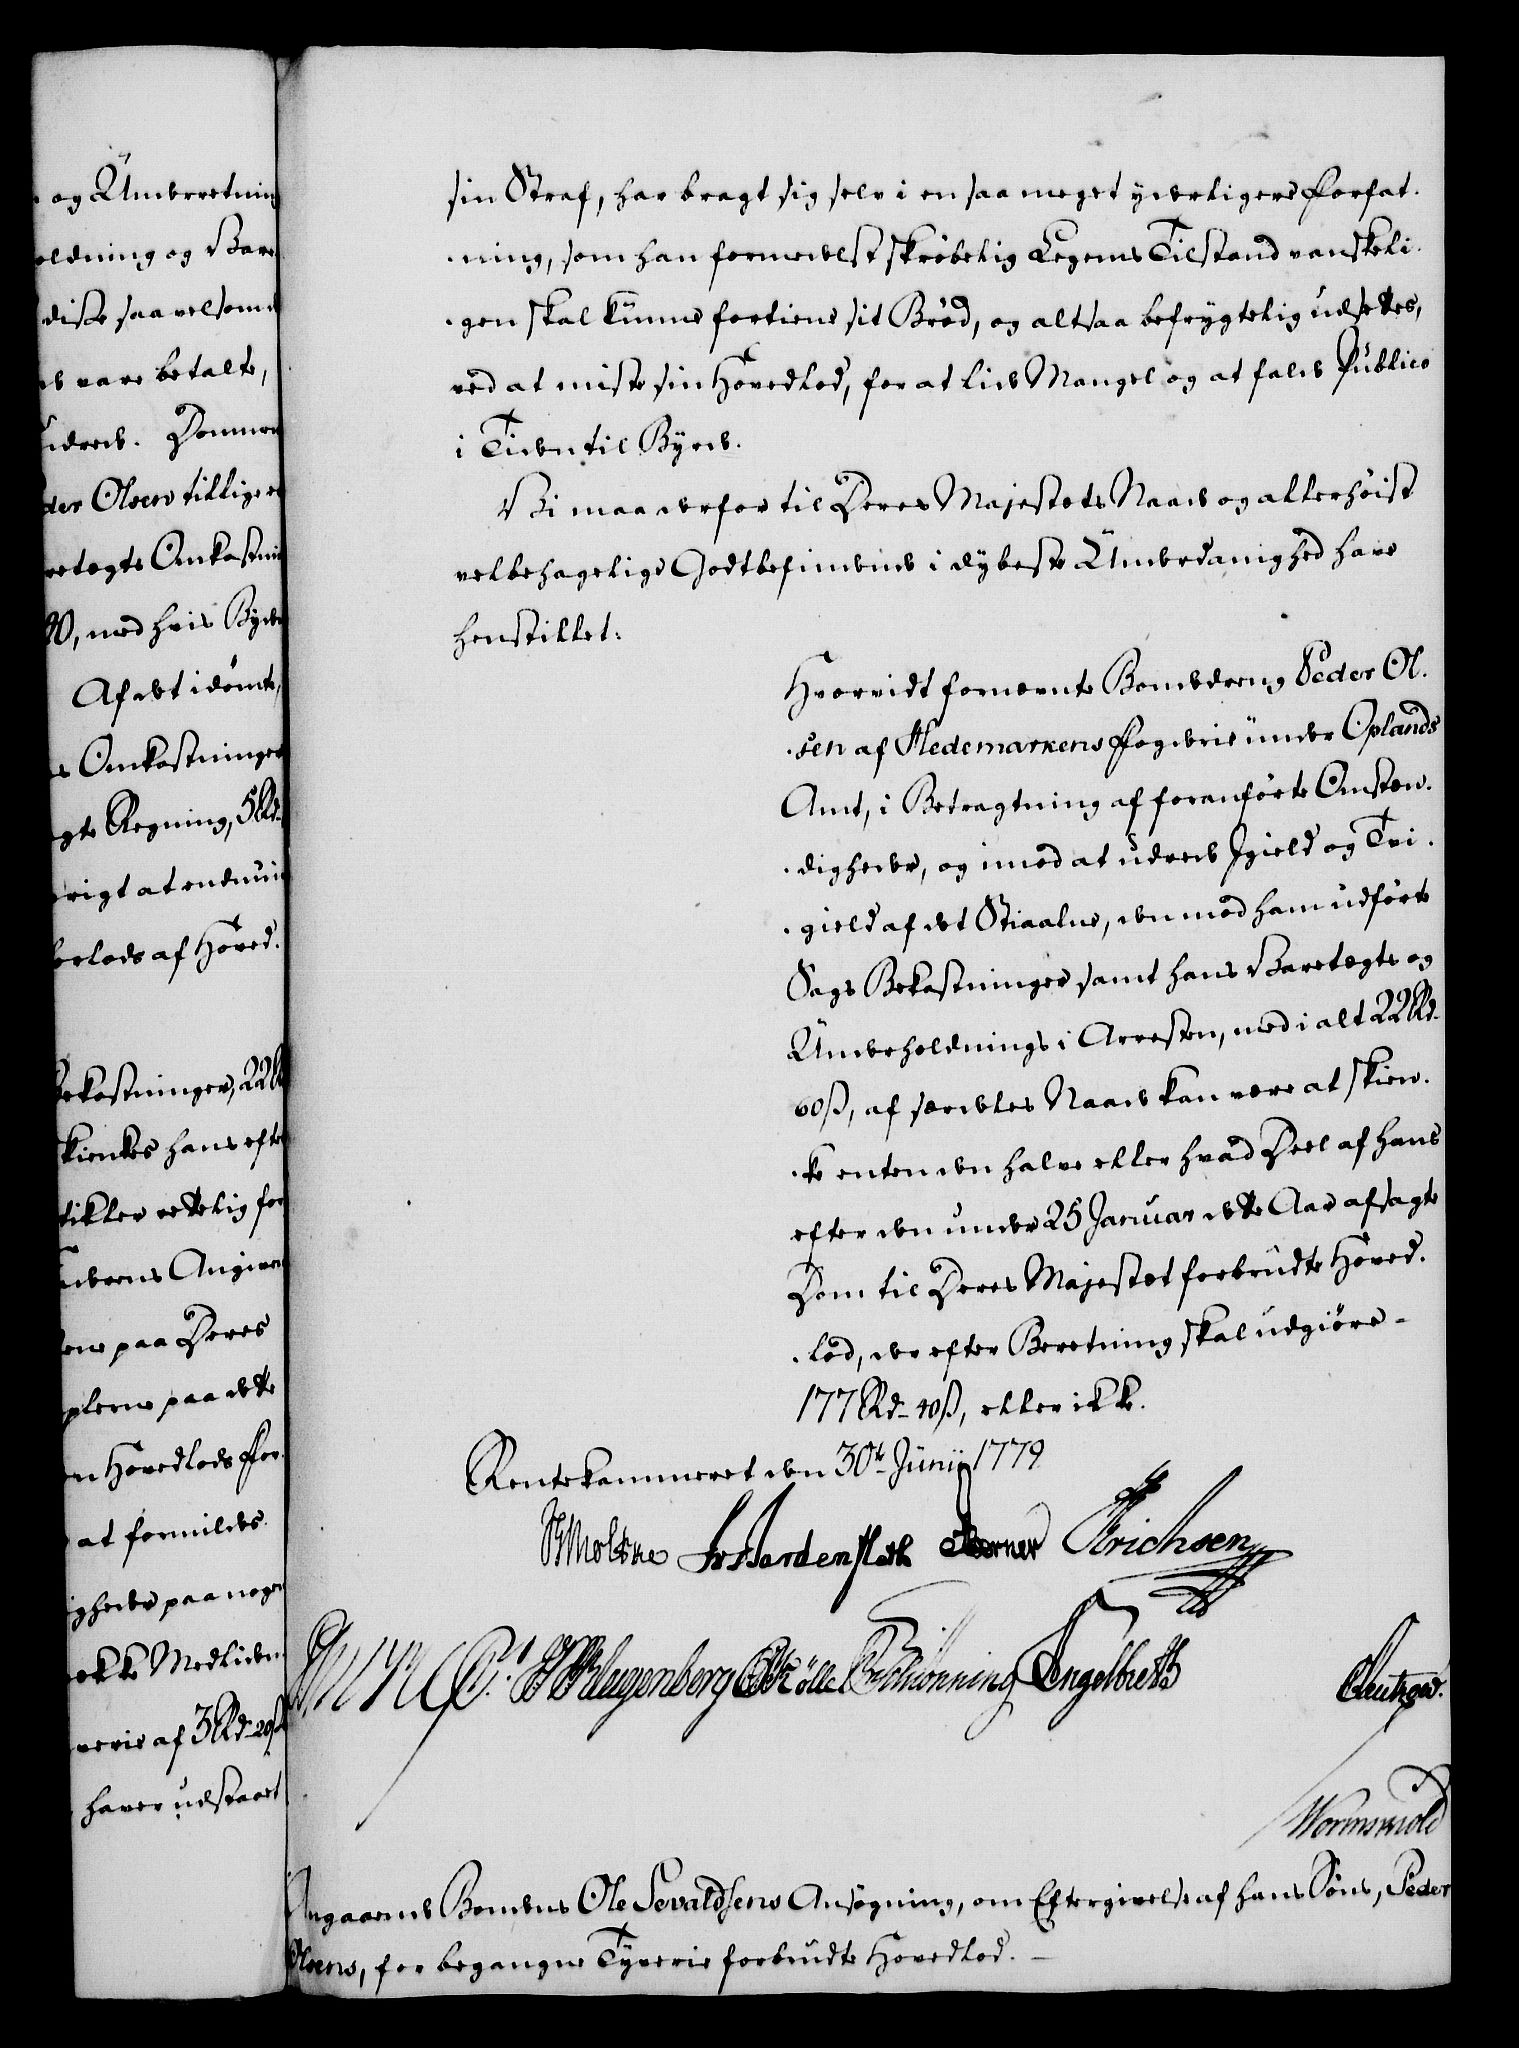 og Underretning
oldning og Vare
disse saavelsom d
vare betalte,
udrede. Dommen
der Olsens tillige
retægts Omkastni
ß, med hvis Byrde
Af det idømte,
s Omkastninger
gte Regning, 5 Rd
rigt at endnu i
erlods af Hoved.
bekostninger, 22 R
skienkes hans efte
tikler rettelig for
Angiven
ene paa Deres
plerne paa dette
en Hovedlods For
at formildes.
igheder paa nogen
ekke Medliden
verie af 3 Rd 20 ß
haver udstaaet
sin Straf, har bragt sig selv i en saa meget ynkeligere Forfat-
-ning, som han formedelst skrøbelig Legems Tilstand vanskeli-
-gen skal kunne fortiene sit Brød, og altsaa befrygtelig udsettes,
ved at miste sin Hovedlod, for at lide Mangel og at falde Publico
i Tiden til Byrde.
Vi maa derfor til Deres Majestæts Naade og allerhøist
velbehagelige Godtbefindende i dybeste Underdanighed have
henstillet:
Hvorvidt fornevnte Bondedreng Peder Ol-
-sen af Hedemarkens Fogderie under Oplands
Amt, i Betragtning af foranførte Omstæn-
-digheder, og imod at udrede Igield og Tvi-
-gield af det Stiaalne, den mod ham udførte
Sags Bekostninger samt hans Varetægts og
Underholdnings i Arresten, med i alt 22 Rd
60 ß, af særdeles Naade kan være at skien-
-ke enten den halve eller hvad Deel af hans
efter den under 25 Januar dette Aar afsagte
Dom til Deres Majestæt forbrudte Hoved-
-lod, der efter Beretning skal udgiøre -
177 Rd 40 ß, eller ikke.
Rentekammeret den 30te Junii 1779
Moltke Hardenfleth Berner Erichsen
Klagenberg Ølle Schiønning Engelbreth
Wormskiold
Angaaende Bondens Ole Sevaldsens Ansøgning, om Eftergivelse af hans Søns, Peder
Olsens, for begangne Tyverie forbrudte Hovedlod. -